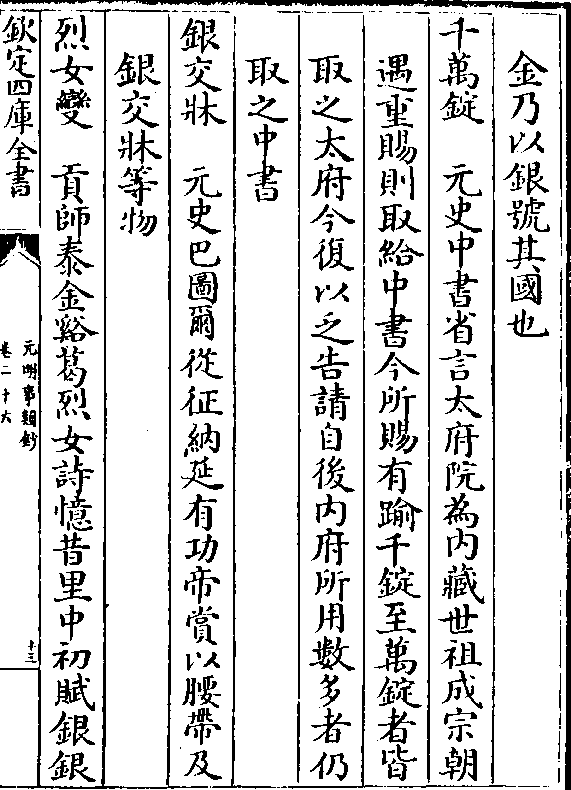 金乃以銀號其國也
千萬錠　元史中書省言太府院為内藏世祖成宗朝
遇重賜則取給中書今所賜有踰千錠至萬錠者皆
取之太府今復以乏告請自後内府所用數多者仍
取之中書
銀交牀　元史巴圖爾從征納延有功帝賞以腰帶及
銀交牀等物
烈女變　貢師泰金谿葛烈女詩憶昔里中初賦銀銀
欽定四庫全書
元明事類鈔
卷二十六
十三